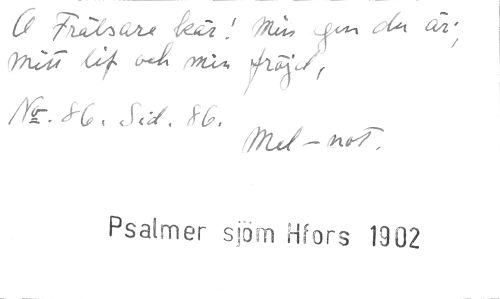 O Frälsare kär! Min gen du är;
mitt lif och min fröjd,
No. 86. Sid. 86.
Mel-not.
Psalmer sjöm Hfors 1902